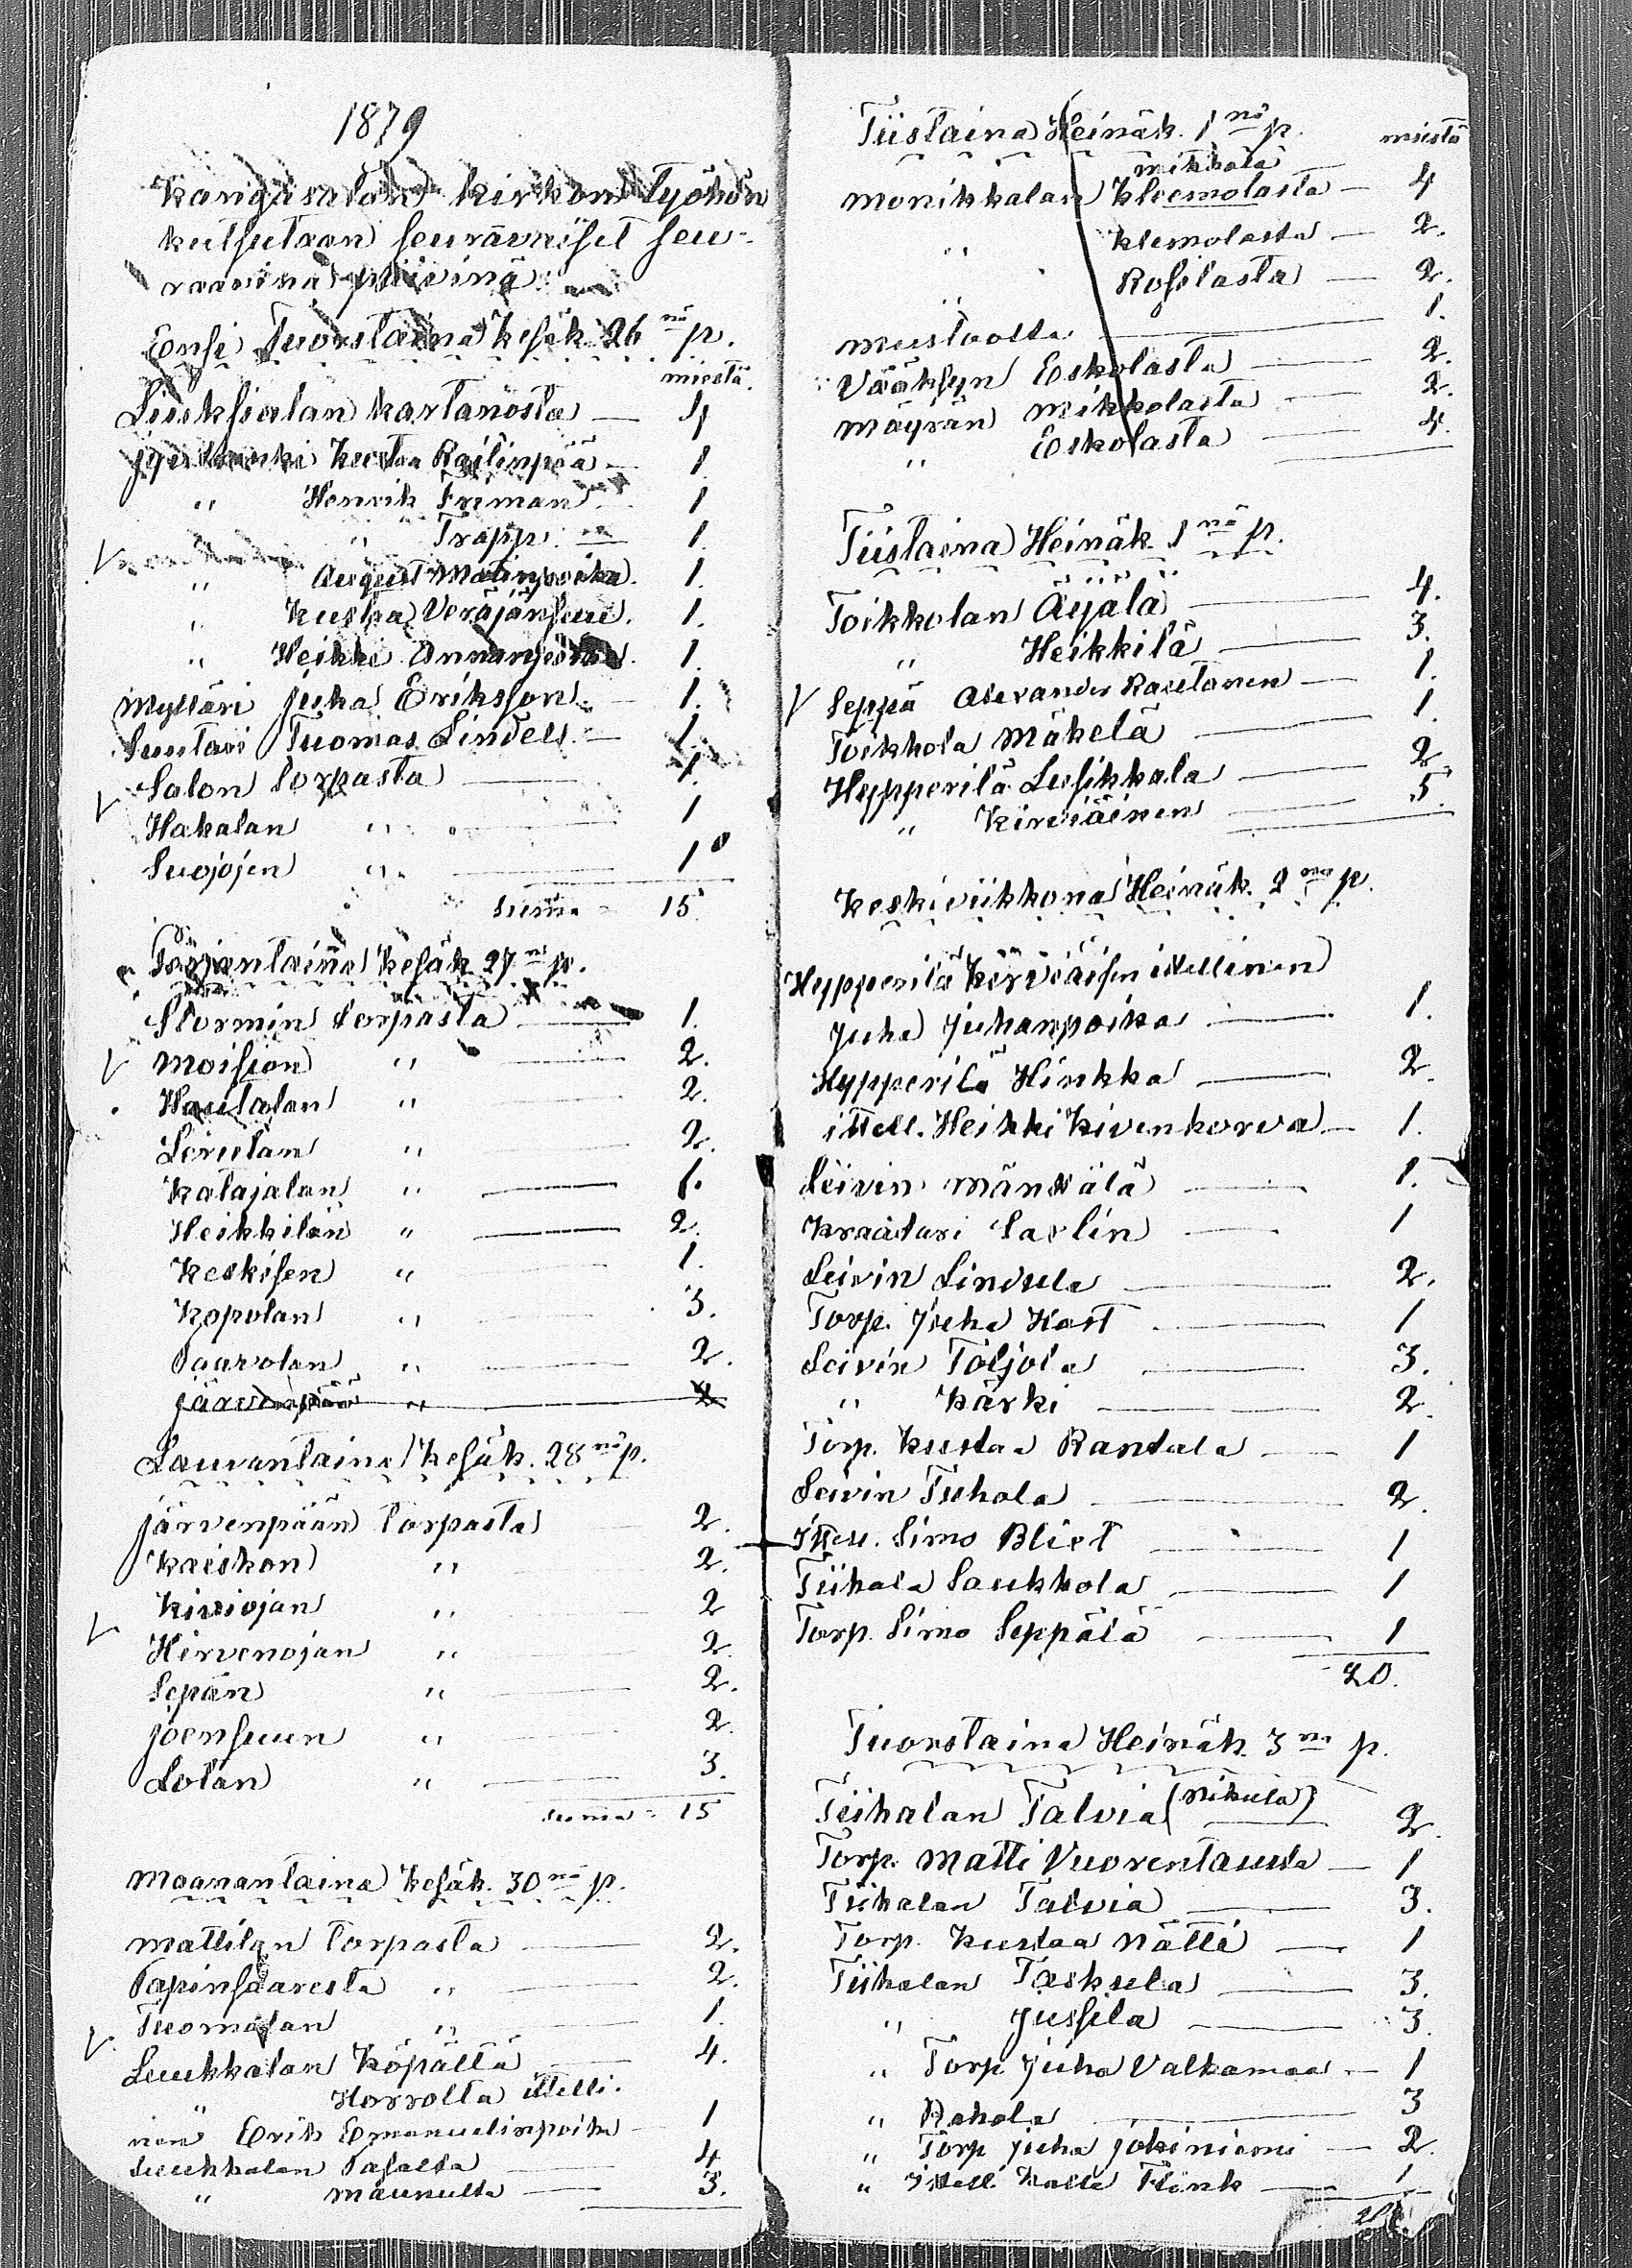 1879
Kangasalan kirkon työhön
kutsutaan seuraavaiset seu-
raavina päivinä:
Ensi Tuorstaina Kesäk. 26 nä p.
miestä.
Liuksialan kartanosta — 4
Kustaa Railinpää — 1
" Henrik Friman — 1
" " Trapp — 1.
" August Matinpoika. 1.
" Kustaa Veräjänsuu. 1.
" Heikki 1.
Mylläri Juha Eriksson — 1.
Suutari Tuomas Lindell — 1
Salon torpasta — 1.
Hakalan " — 1
Suojojen " — 1
suma = 15
Perjantaina Kesäk. 27 nä p.
Stormin torpasta — 1.
Moision " — 2.
Hautalan " — 2.
Leiulan " — 2.
Katajalan " — 1.
Heikkilän " — 2.
Keskisen " — 1.
Kopolan " — 3.
Paavolan " — 2.
Järvenpää " — 2
Lauvantaina Kesäk. 28 nä p.
Järvenpään torpasta 2.
Kaiskon " 2.
Kiviojan " 2
Hirvenojan " 2.
Sepän " 2.
Joensuun " 2.
Lolan " 3.
suma = 15
Maanantaina Kesäk. 30 nä p.
Mattilan torpasta — 2.
Papinsaaresta " — 2.
Tuomolan " 1.
Luukkalan Köpältä — 4.
" Horrolta ittelli-
nen Erik Emanuelinpoika — 1
Luukkalan Pasalta — 4
" Maunulta — 3.
Tiistaina Heinäk. 1 nä p.
miestä
Mikkola
Monikkalan Kleemolasta — 4
" Klemolasta — 2.
" Rossilasta — 2.
Mustoolta — 1.
Vääksyn Eskolasta — 2.
Mäyrän Mikkolasta — 2.
" Eskolasta — 4.
Tiistaina Heinäk. 1 nä p.
Toikkolan Äijälä — 4.
" Heikkilä — 3.
Seppä Alexander Rautanen — 1.
Toikkola Mäkelä — 1.
Hypperilä Lusikkala — 2.
" Kirviäinen — 5.
Keskiviikkona Heinäk. 2 na p.
Hypperilä Kirviäisen itellinen
Juha Juhanpoika — 1.
Hypperilä Hinkka — 2.
ittell. Heikki Kivenkorva — 1.
Leivin Mäntälä — 1.
Kraatari Saxlin — 1
Leivin Lindula — 2.
Torp. Juha Kast — 1
Leivin Toljola — 3.
" Kärki — 2.
Torp. Kustaa Rantala — 1
Leivin Tiihala — 2.
Ittell. Simo Bliet — 1
Tiihala Saukkola — 1
Torp. Simo Seppälä — 1
20.
Tuorstaina Heinäk. 3 na p.
Tiihalan Talvia (Nikula) — 2.
Torp. Matti Vuorentausta — 1
Tiihalan Talvia — 3.
Torp. Kustaa Nätti — 1
Tiihalan Taskula — 3.
" Jussila — 3.
" Torp. Juha Valkamaa — 1
" Rahola — 3
" Torp. Juha Jokiniemi — 2.
" Ittell. Kalle Flink — 1